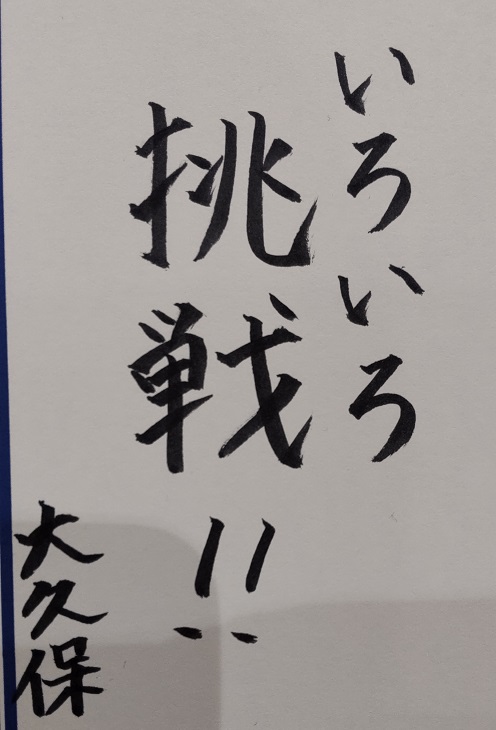 いろいろ
挑戦!!
大久保